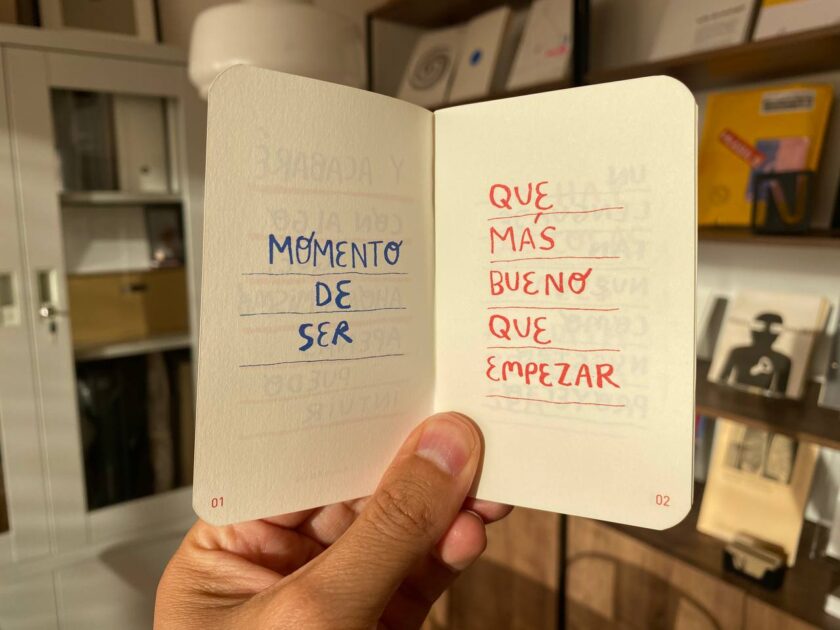 MOMENTO
DE
SER
01
QUE
MÁS
BUENO
QUE
EMPEZAR
02